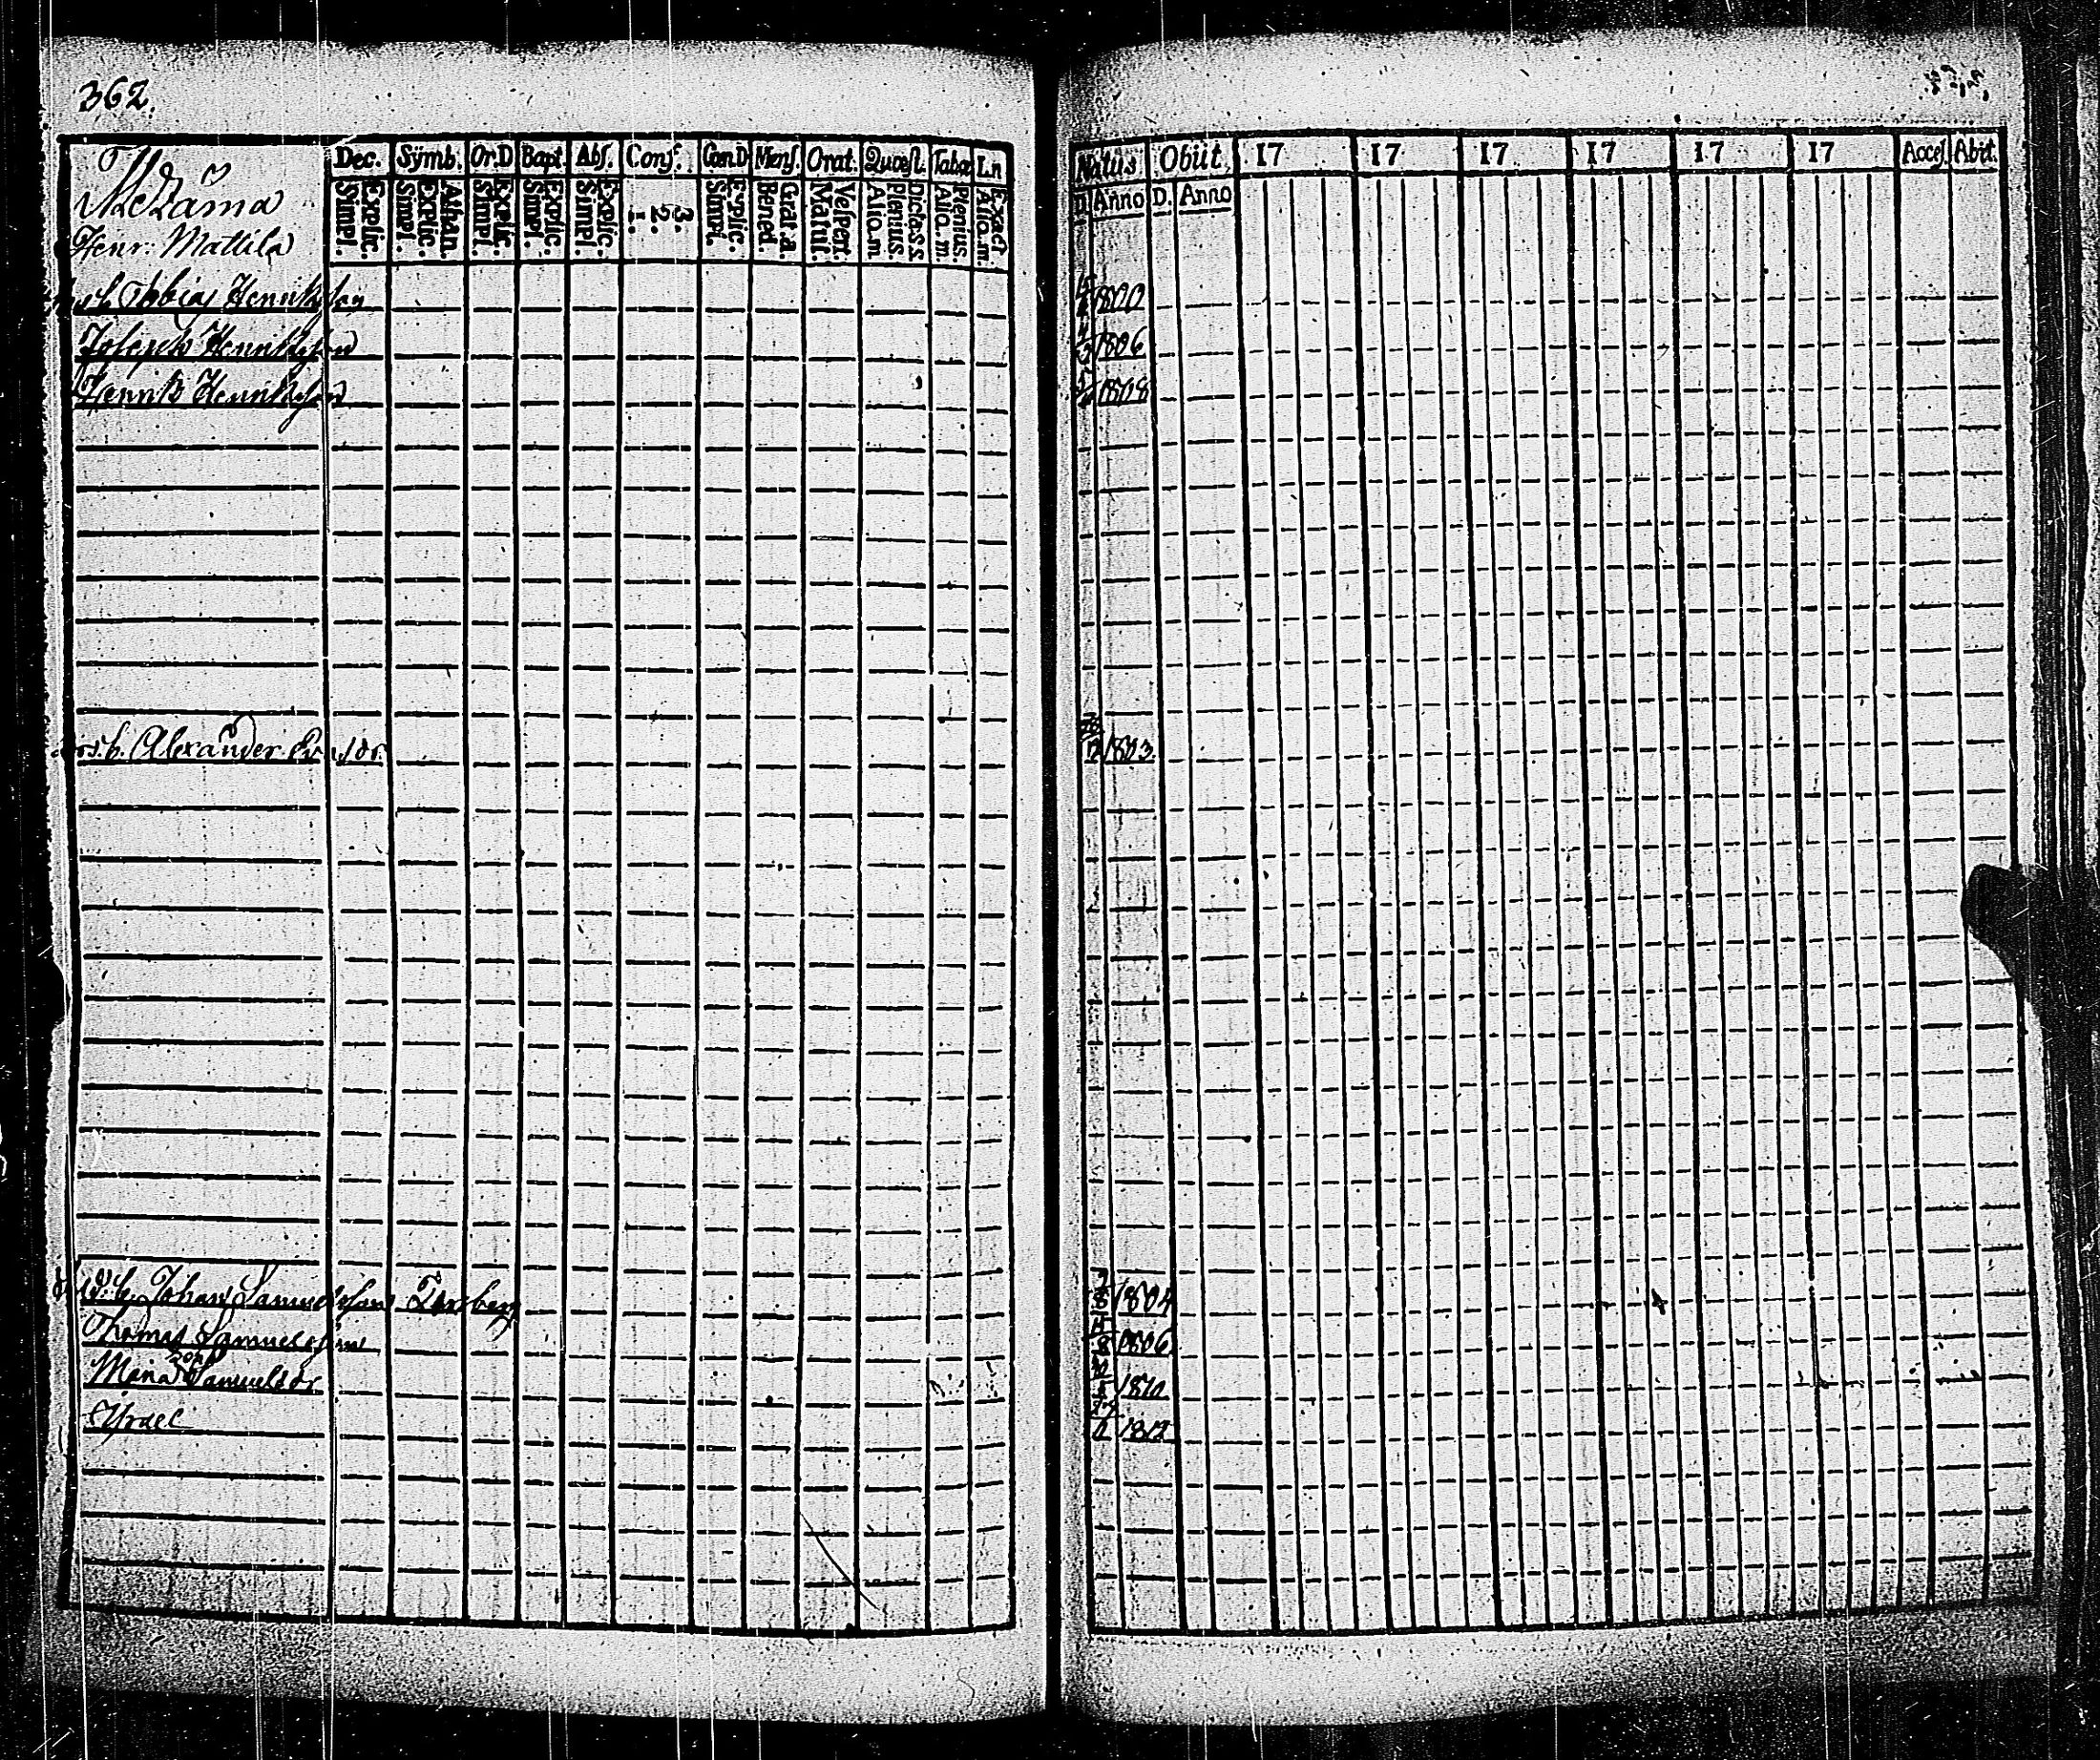 362.
Henr: Mattila
Dec. Symb. Or.D Bapt. Abs. Conf. Con.D Mens. Orat. Quæst. Tabæ L.n
Simpl. Explic. Simpl. Explic. Athan. Simpl. Explic. Simpl. Explic. Simpl. Explic. 1. 2. 3. Simpl. Explic. Bened. Grat.a. Matut. Vespert. Alio.m. Plenius. Dicta.s.s Alio.m. Plenius. Alio.m. Exact
Tobias Henriksson
Joseph Henriksson
Henrik Henriksson
Alexander
Johan Samuelsson
Thomas Samuelsson
Maria Samuelsdr
Israel
Natus Obiit. 17 17 17 17 17 17 Acces. Abiit.
D. Anno D. Anno
1800
1806
1808
1803.
1804
1806
1810
1812